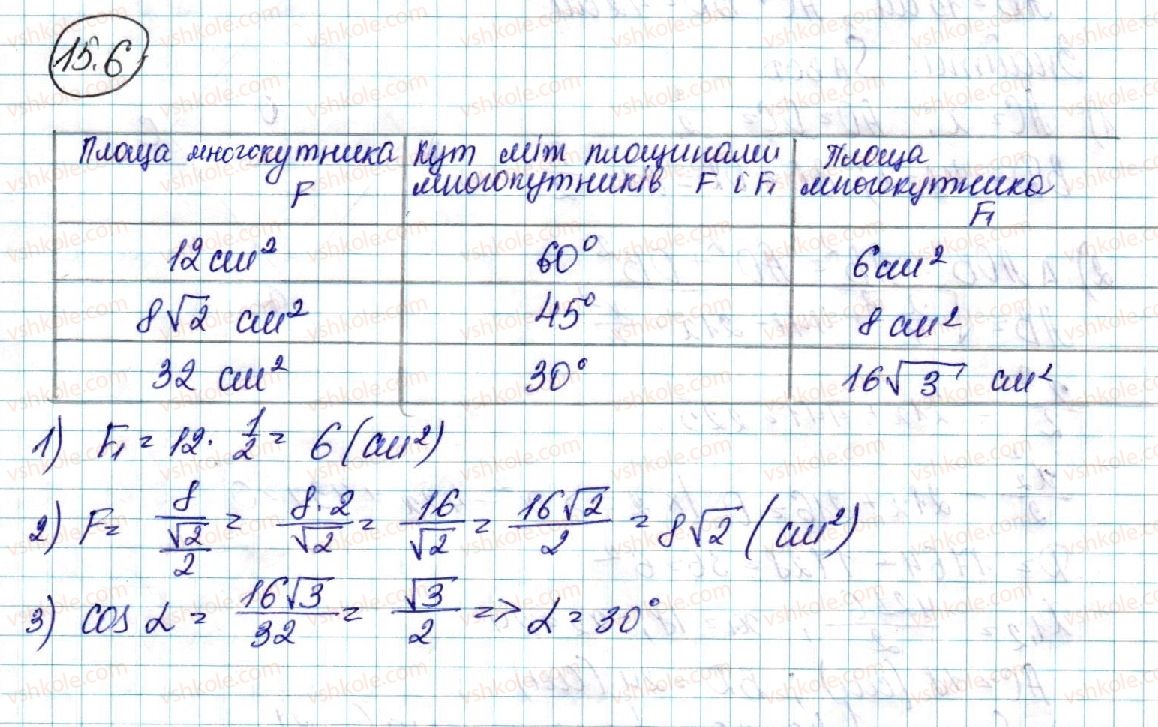 15.6
Площа многокутника F | Кут між площинами многокутників F і F₁ | Площа многокутника F₁
12 см² | 60° | 6 см²
8√2 см² | 45° | 8 см²
32 см² | 30° | 16√3 см²
1) F₁ = 12 · 1/2 = 6 (см²)
2) F = 8/(√2/2) = 8·2/√2 = 16/√2 = 16√2/2 = 8√2 (см²)
3) cos α = 16√3/32 = √3/2 => α = 30°